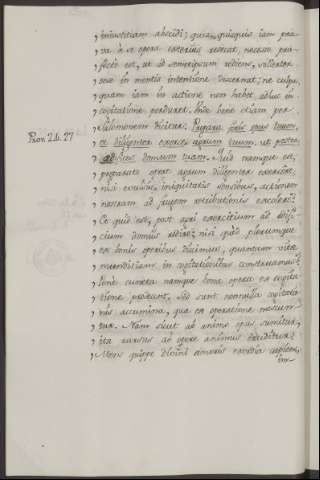 iniustitiam abscidi; quia quisquis iam pra-
va à se opera exterius resecat, necesse pro-
fecto est, ut ad semetipsum rediens, solerter
sese in mentis intentione discernat; ne culpa,
quam iam in actione non habet, adhuc in
cogitatione perduret. Hinc bene etiam per
Salomonem dicitur: Præpara foris opus tuum,
Prov. 24. 27
et diligenter exerce agrum tuum, ut postea
ædifices domum tuam. Quid namque est,
præparato opere agrum diligenter exercere,
nisi evulsis iniquitatis sentibus, actionem
nostram ad frugem retributionis excolere?
Et quid est, post agri exercitium ad ædifi-
cium domus redire, nisi quod plerumque
ex bonis operibus discimus, quantam vitæ
munditiam in cogitationibus construamus?
Pene cuncta namque bona opera ex cogita-
tione prodeunt, sed sunt nonnulla cogitatio-
nis acumina, quæ ex operatione nascun-
tur. Nam sicut ab animo opus sumitur,
ita rursus ab opere animus eruditur.
Mens quippe divini amoris exordia capiens,